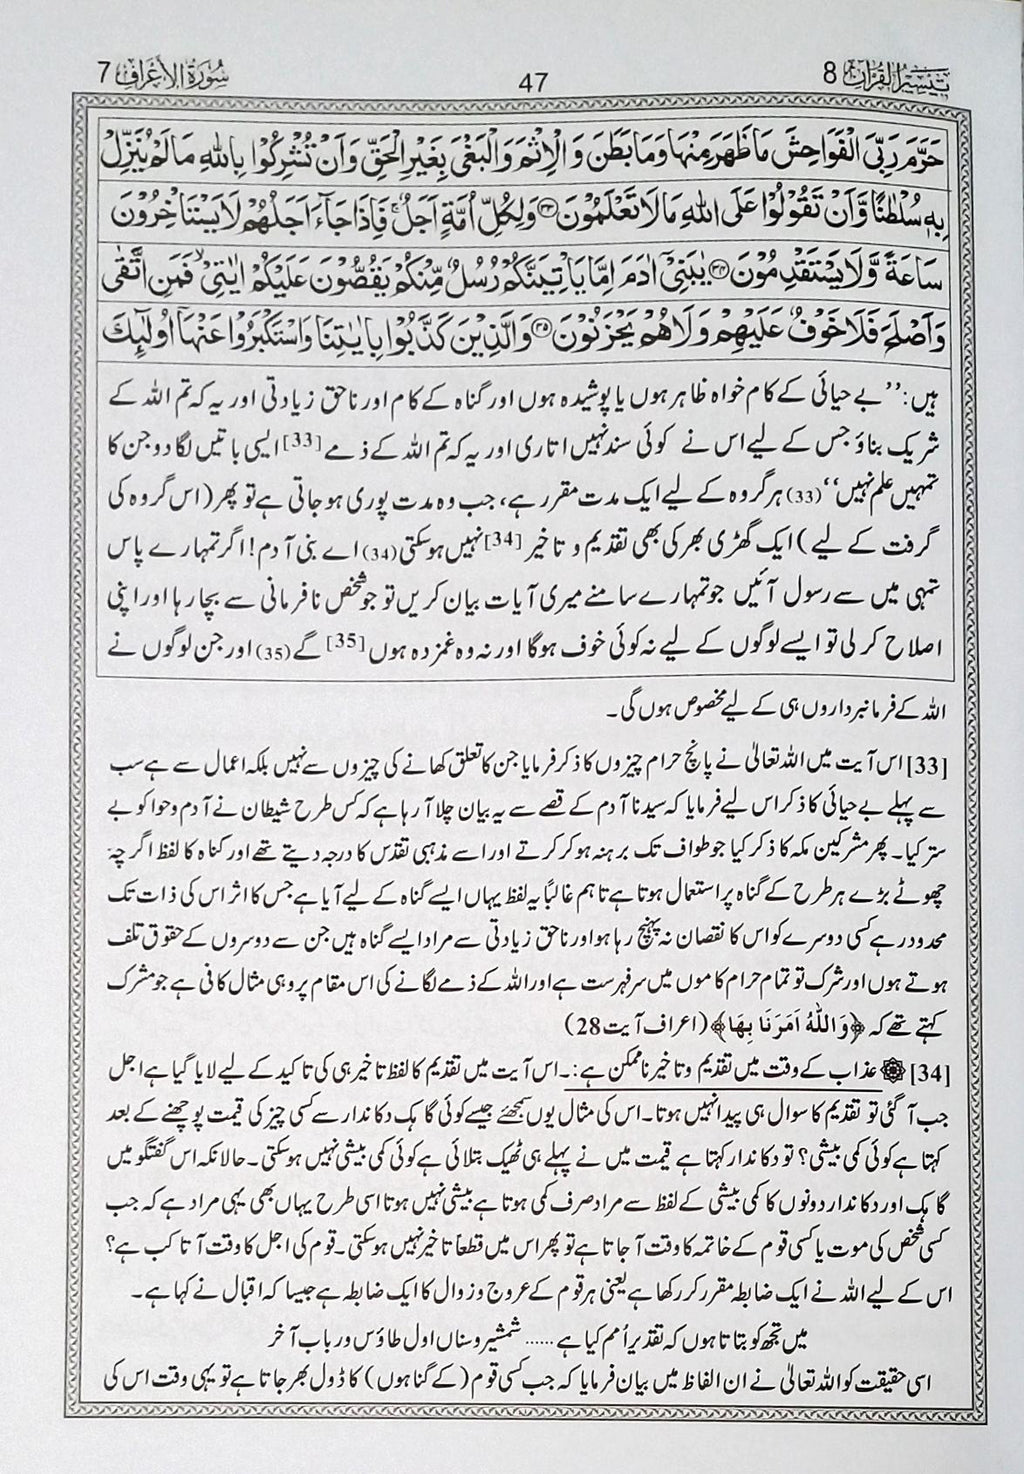 تیسیر القرآن 8
47
سورة الأعراف 7
حَرَّمَ رَبِّیَ الْفَوَاحِشَ مَا ظَهَرَ مِنْهَا وَمَا بَطَنَ وَ الْاِثْمَ وَالْبَغْیَ بِغَیْرِ الْحَقِّ وَاَنْ تُشْرِکُوْا بِاللّٰهِ مَا لَمْ یُنَزِّلْ
بِهٖ سُلْطٰنًا وَّاَنْ تَقُوْلُوْا عَلَی اللّٰهِ مَا لَا تَعْلَمُوْنَ ۝۳۳ وَلِکُلِّ اُمَّةٍ اَجَلٌ ۚ فَاِذَا جَآءَ اَجَلُهُمْ لَا یَسْتَاْخِرُوْنَ
سَاعَةً وَّلَا یَسْتَقْدِمُوْنَ ۝۳۴ یٰبَنِیْٓ اٰدَمَ اِمَّا یَاْتِیَنَّکُمْ رُسُلٌ مِّنْکُمْ یَقُصُّوْنَ عَلَیْکُمْ اٰیٰتِیْ ۙ فَمَنِ اتَّقٰی
وَاَصْلَحَ فَلَا خَوْفٌ عَلَیْهِمْ وَلَا هُمْ یَحْزَنُوْنَ ۝۳۵ وَالَّذِیْنَ کَذَّبُوْا بِاٰیٰتِنَا وَاسْتَکْبَرُوْا عَنْهَآ اُولٰٓئِکَ
ہیں: ’’بے حیائی کے کام خواہ ظاہر ہوں یا پوشیدہ ہوں اور گناہ کے کام اور ناحق زیادتی اور یہ کہ تم اللہ کے
شریک بناؤ جس کے لیے اس نے کوئی سند نہیں اتاری اور یہ کہ تم اللہ کے ذمے [33] ایسی باتیں لگا دو جن کا
تمہیں علم نہیں‘‘ (33) ہر گروہ کے لیے ایک مدت مقرر ہے، جب وہ مدت پوری ہو جاتی ہے تو پھر (اس گروہ کی
گرفت کے لیے) ایک گھڑی بھر کی بھی تقدیم و تاخیر [34] نہیں ہو سکتی (34) اے بنی آدم! اگر تمہارے پاس
تمہی میں سے رسول آئیں جو تمہارے سامنے میری آیات بیان کریں تو جو شخص نافرمانی سے بچا رہا اور اپنی
اصلاح کر لی تو ایسے لوگوں کے لیے نہ کوئی خوف ہوگا اور نہ وہ غمزدہ ہوں [35] گے (35) اور جن لوگوں نے
اللہ کے فرمانبرداروں ہی کے لیے مخصوص ہوں گی۔
[33] اس آیت میں اللہ تعالیٰ نے پانچ حرام چیزوں کا ذکر فرمایا جن کا تعلق کھانے کی چیزوں سے نہیں بلکہ اعمال سے ہے سب
سے پہلے بے حیائی کا ذکر اس لیے فرمایا کہ سیدنا آدم کے قصے سے یہ بیان چلا آ رہا ہے کہ کس طرح شیطان نے آدم و حوا کو بے
ستر کیا۔ پھر مشرکین مکہ کا ذکر کیا جو طواف تک برہنہ ہو کر کرتے اور اسے مذہبی تقدس کا درجہ دیتے تھے اور گناہ کا لفظ اگرچہ
چھوٹے بڑے ہر طرح کے گناہ پر استعمال ہوتا ہے تاہم غالباً یہ لفظ یہاں ایسے گناہ کے لیے آیا ہے جس کا اثر اس کی ذات تک
محدود رہے کسی دوسرے کو اس کا نقصان نہ پہنچ رہا ہو اور ناحق زیادتی سے مراد ایسے گناہ ہیں جن سے دوسروں کے حقوق تلف
ہوتے ہوں اور شرک تو تمام حرام کاموں میں سرفہرست ہے اور اللہ کے ذمے لگانے کی اس مقام پر وہی مثال کافی ہے جو مشرک
کہتے تھے کہ ﴿وَاللّٰهُ اَمَرَنَا بِهَا﴾ (اعراف آیت 28)
[34] ۞ عذاب کے وقت میں تقدیم و تاخیر ناممکن ہے:۔ اس آیت میں تقدیم کا لفظ تاخیر ہی کی تاکید کے لیے لایا گیا ہے اجل
جب آ گئی تو تقدیم کا سوال ہی پیدا نہیں ہوتا۔ اس کی مثال یوں سمجھئے جیسے کوئی گاہک دکاندار سے کسی چیز کی قیمت پوچھنے کے بعد
کہتا ہے کوئی کمی بیشی؟ تو دکاندار کہتا ہے قیمت میں نے پہلے ہی ٹھیک بتلائی ہے کوئی کمی بیشی نہیں ہو سکتی۔ حالانکہ اس گفتگو میں
گاہک اور دکاندار دونوں کا کمی بیشی کے لفظ سے مراد صرف کمی ہوتا ہے بیشی نہیں ہوتا اسی طرح یہاں بھی یہی مراد ہے کہ جب
کسی شخص کی موت یا کسی قوم کے خاتمہ کا وقت آ جاتا ہے تو پھر اس میں قطعاً تاخیر نہیں ہو سکتی۔ قوم کی اجل کا وقت آتا کب ہے؟
اس کے لیے اللہ نے ایک ضابطہ مقرر کر رکھا ہے یعنی ہر قوم کے عروج و زوال کا ایک ضابطہ ہے جیسا کہ اقبال نے کہا ہے۔
میں تجھ کو بتاتا ہوں کہ تقدیر اُمم کیا ہے ...... شمشیر و سناں اول طاؤس و رباب آخر
اسی حقیقت کو اللہ تعالیٰ نے ان الفاظ میں بیان فرمایا کہ جب کسی قوم (کے گناہوں) کا ڈول بھر جاتا ہے تو یہی وقت اس کی